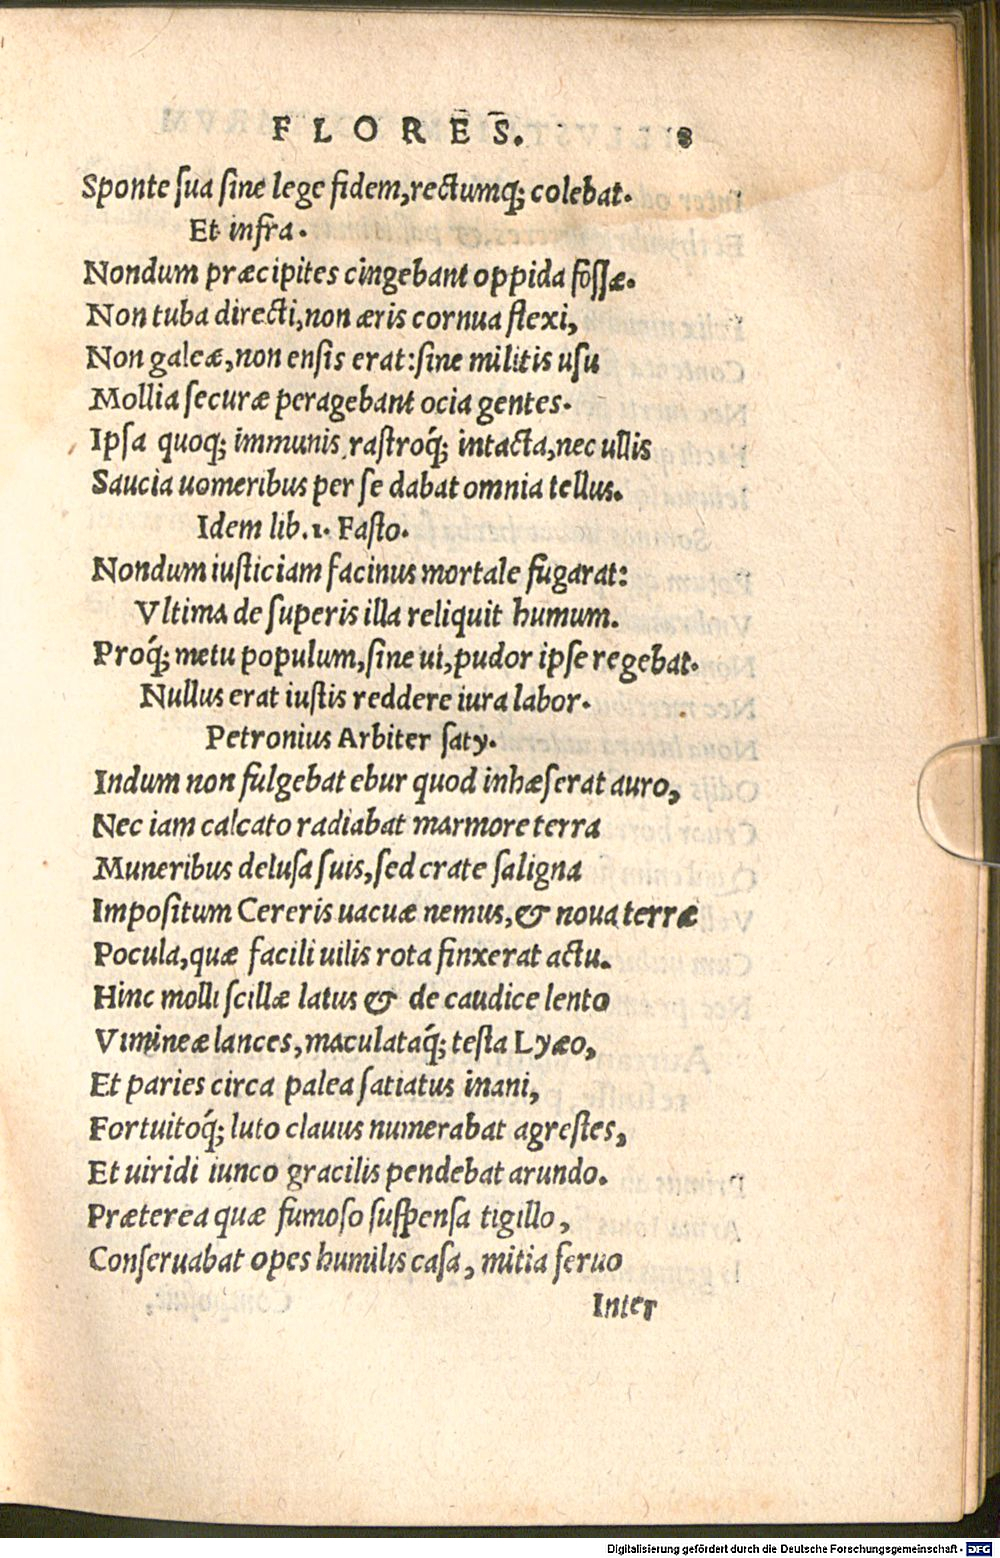 FLORES. 8
Sponte sua sine lege fidem, rectumq; colebat.
Et infra.
Nondum præcipites cingebant oppida fossæ.
Non tuba directi, non æris cornua flexi,
Non galeæ, non ensis erat: sine militis usu
Mollia securæ peragebant ocia gentes.
Ipsa quoq; immunis rastroq́; intacta, nec ullis
Saucia uomeribus per se dabat omnia tellus.
Idem lib. 1. Fasto.
Nondum iusticiam facinus mortale fugarat:
Vltima de superis illa reliquit humum.
Proq́; metu populum, sine ui, pudor ipse regebat.
Nullus erat iustis reddere iura labor.
Petronius Arbiter saty.
Indum non fulgebat ebur quod inhæserat auro,
Nec iam calcato radiabat marmore terra
Muneribus delusa suis, sed crate saligna
Impositum Cereris uacuæ nemus, & noua terræ
Pocula, quæ facili uilis rota finxerat actu.
Hinc molli scillæ latus & de caudice lento
Vimineæ lances, maculataq́; testa Lyæo,
Et paries circa palea satiatus inani,
Fortuitoq́; luto clauus numerabat agrestes,
Et uiridi iunco gracilis pendebat arundo.
Præterea quæ fumoso suspensa tigillo,
Conseruabat opes humilis casa, mitia seruo
Inter
Digitalisierung gefördert durch die Deutsche Forschungsgemeinschaft - DFG